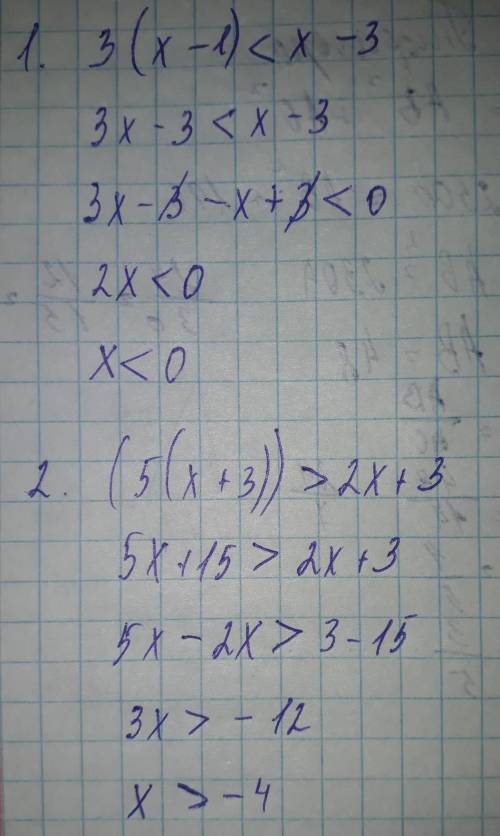 1. 3(x-1)<x-3
3x-3<x-3
3x-3-x+3<0
2x<0
x<0
2. (5(x+3))>2x+3
5x+15>2x+3
5x-2x>3-15
3x>-12
x>-4